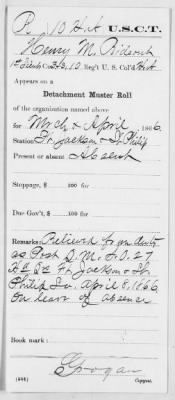 R 10 H.A. U.S.C.T.
Henry M. Rideout
1st Lieut, Co. 10 Reg't U. S. Col'd H A
Appears on a
Detachment Muster Roll
of the organization named above
for Mrch & April 1866.
Station Ft Jackson & St Philip
Present or absent Absent
Stoppage, $ 100 for
Due Gov't, $ 100 for
Remarks: Relieved from duty
as Post Q.M. S.O. 27
Hd Qs Ft Jackson & St.
Philip La. April 8, 1866
On leave of absence
Book mark:
Grogan
(858) Copyist.